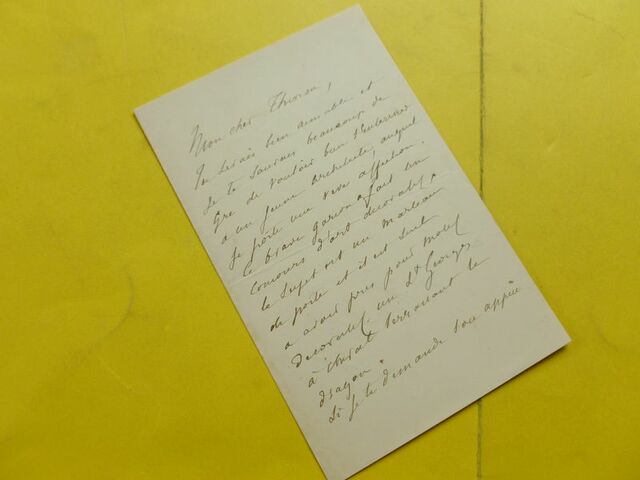 Mon cher Thiron,
Tu serais bien aimable et
je te saurais beaucoup de
gré de vouloir bien t'intéresser
a un jeune architecte, auquel
je porte une vive affection.
Ce brave garçon a fait un
concours d'art décoratif.
le sujet est un marteau
de porte et il est seul
a avoir pris pour motif
décoratif un St Georges
à cheval terrassant le
dragon.
Si je te demande ton appui